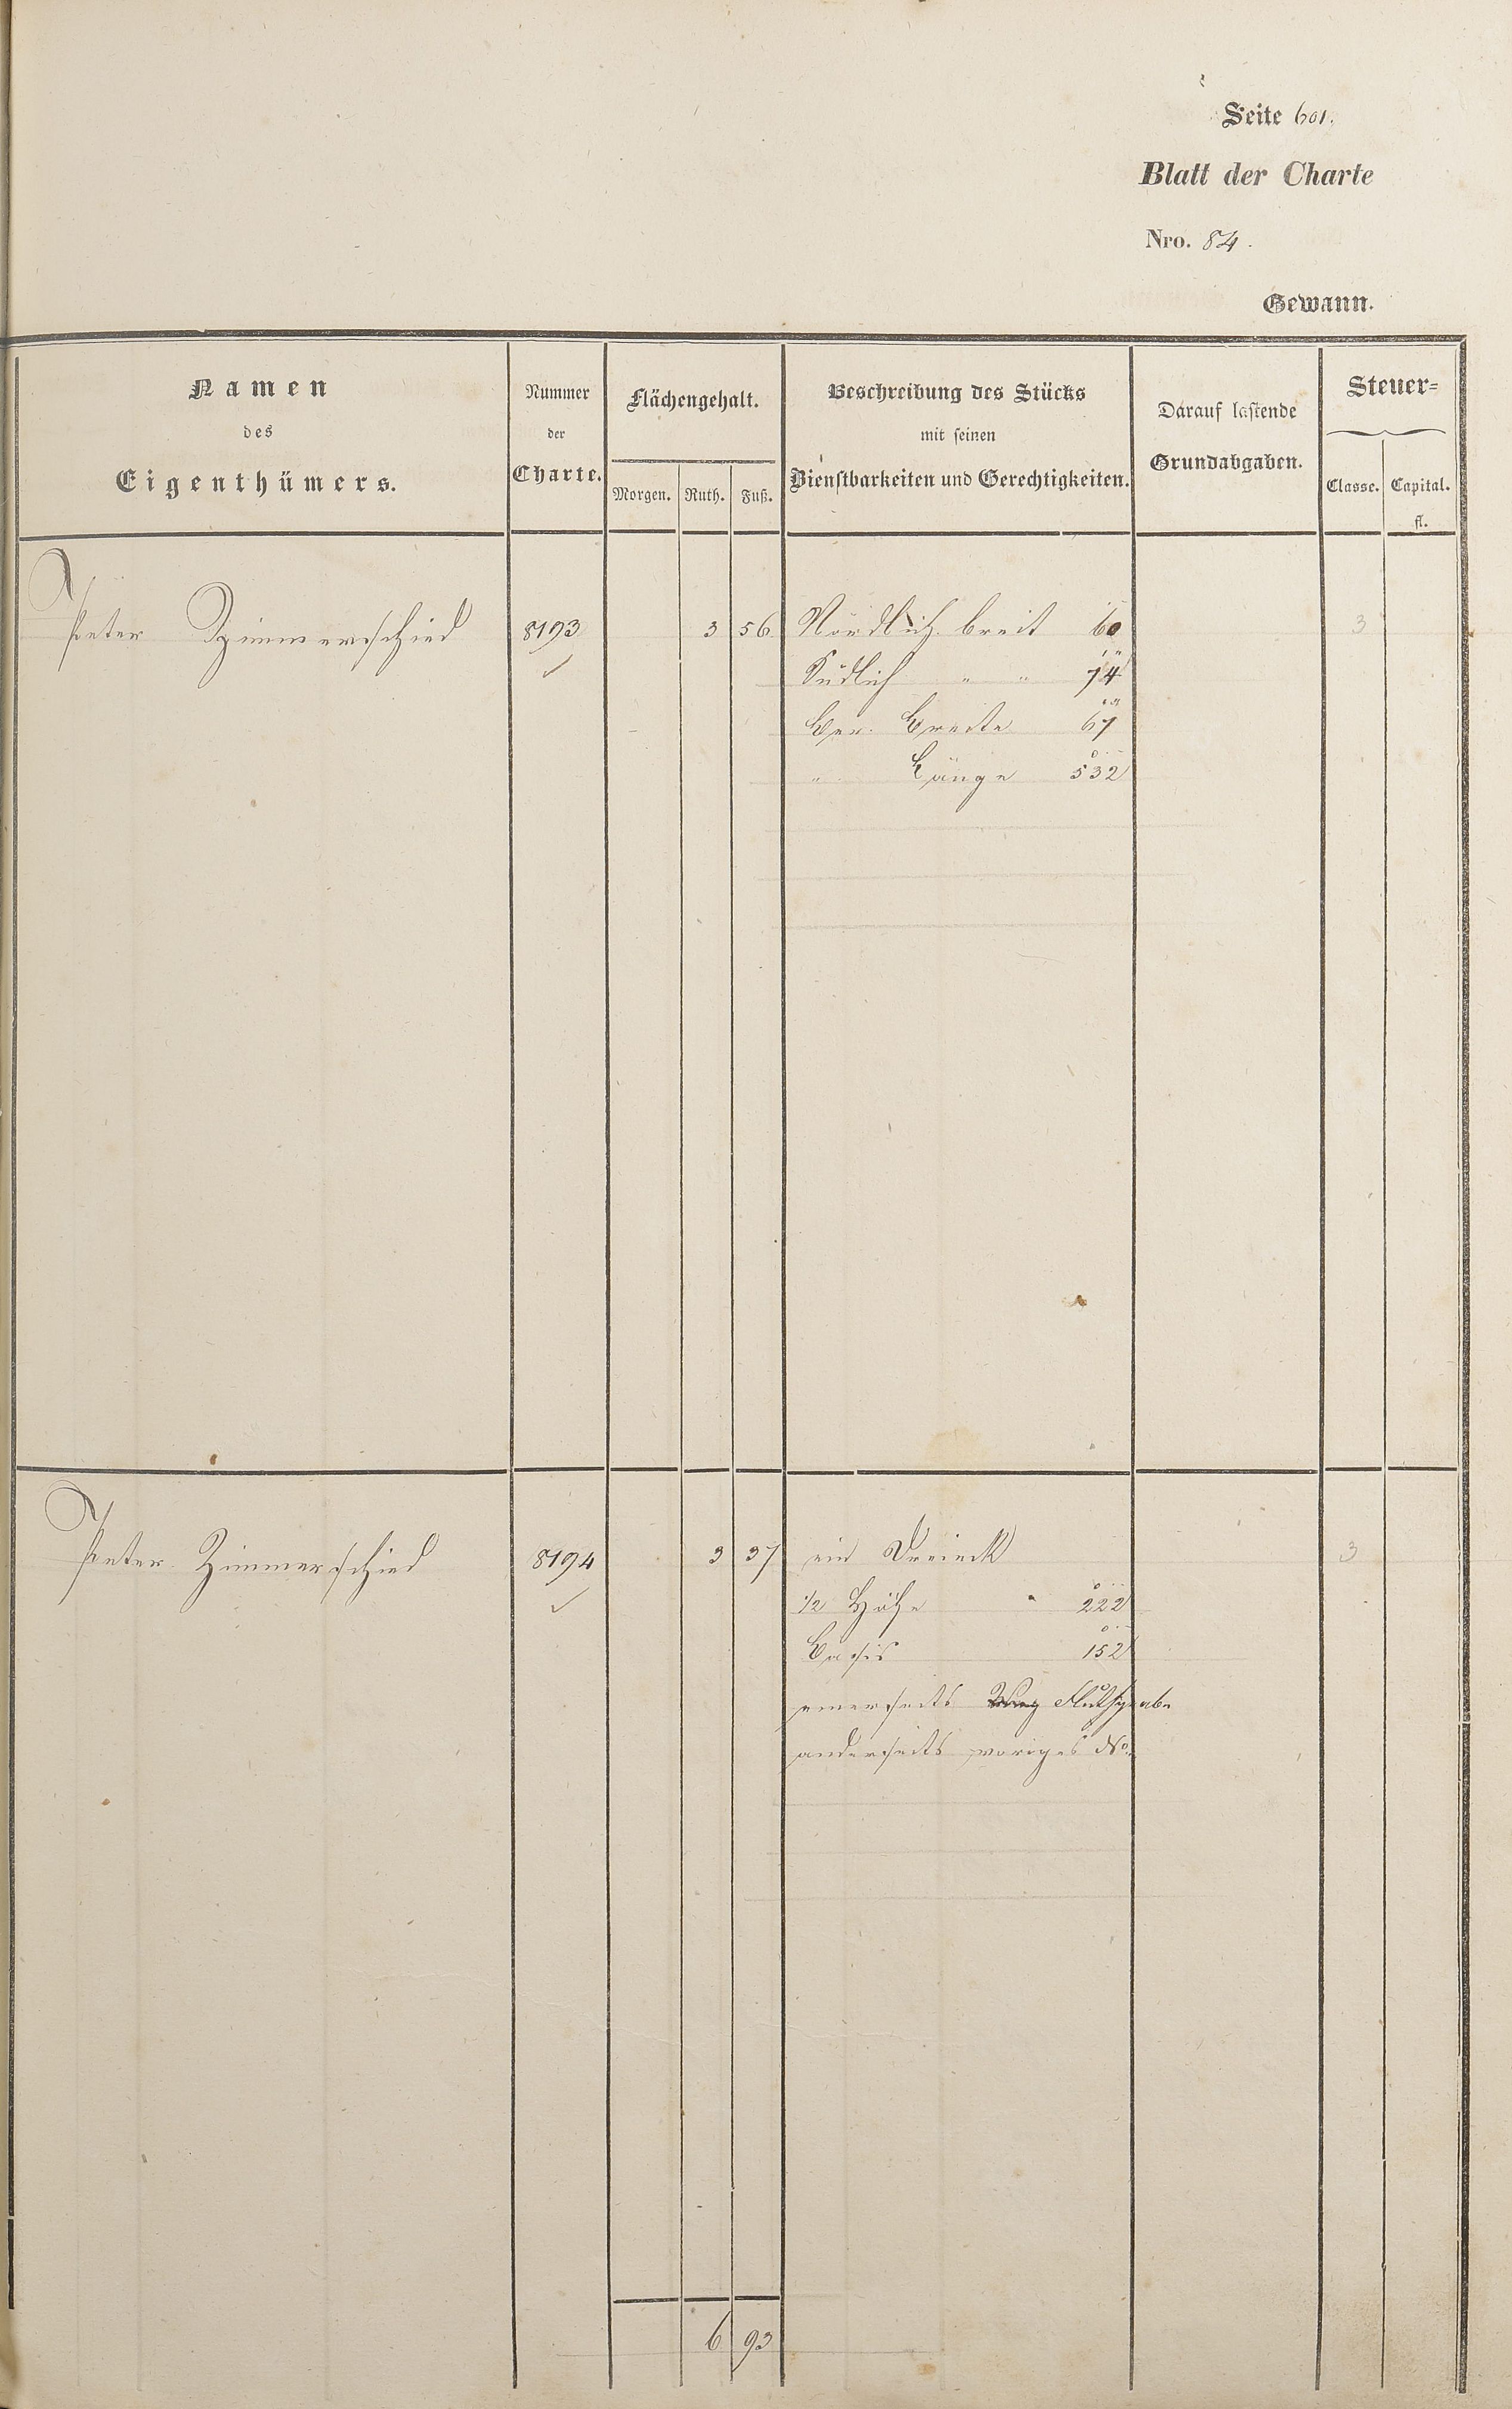 Seite 601.
Blatt der Charte
Nro. 84.
Gewann.
Namen
des
Eigenthümers.
Nummer
der
Charte.
Flächengehalt.
Morgen. Ruth. Fuß.
Beschreibung des Stücks
mit seinen
Dienstbarkeiten und Gerechtigkeiten.
Darauf lastende
Grundabgaben.
Steuer-
Classe. Capital.
fl.
Peter Zimmerschied 8193 3 56 Nördlich breit 60 3
Südlich " " 74
Ber. Breite 67
" Länge 532
Peter Zimmerschied 8194 3 37 ein Dreieck 3
1/2 Höhe 222
Basis 152
einerseits Weg Fluthgrabe
anderseits voriges No.
6 93